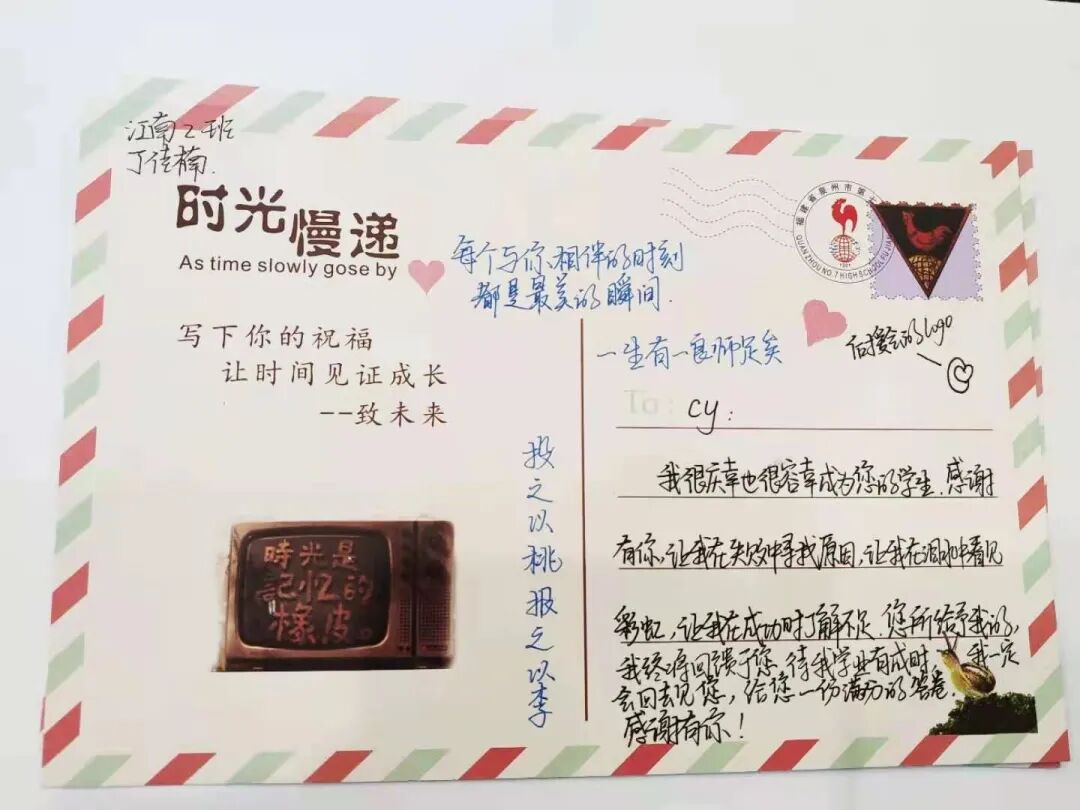 江南2班
丁佳楠.
时光慢递
As time slowly gose by
每个与你相伴的时刻
都是最美的瞬间.
写下你的祝福
让时间见证成长
--致未来
時光是
記忆的
橡皮。
投之以桃 报之以李
福建省泉州市第
QUANZHOU NO.7 HIGH SCHOOL FUJIAN
1901
一生有一良师足矣
后援会的logo
To: cy:
我很庆幸也很容幸成为您的学生.感谢
有你,让我在失败中寻找原因,让我在泪水中看见
彩虹,让我在成功时了解不足.您所给予我的,
我终将回馈于您.待我学业有成时,我一定
会回去见您,给您一份满分的答卷.
感谢有你!